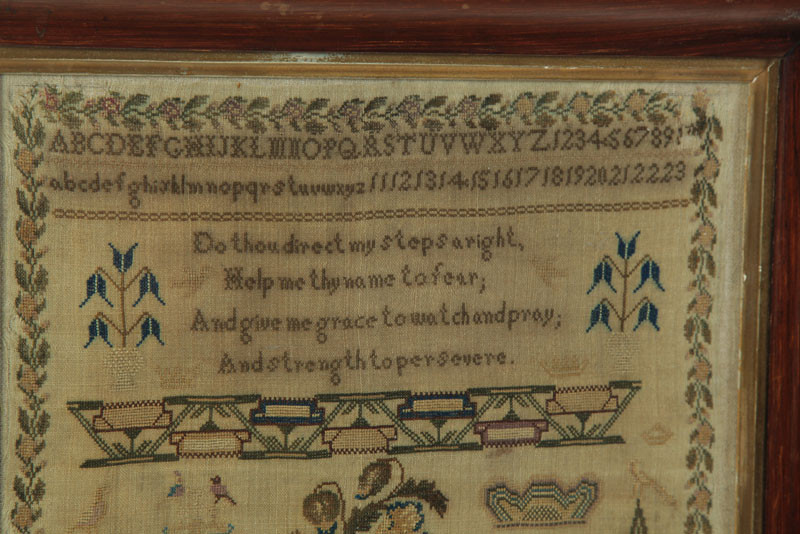 ABCDEFGHIJKLMNOPQRSTUVWXYZ123456789
abcdefghiklmnopqrstuvwxyz 11121314151617181920212223
Do thou direct my steps aright,
Help me thy name to fear;
And give me grace to watch and pray;
And strength to persevere.